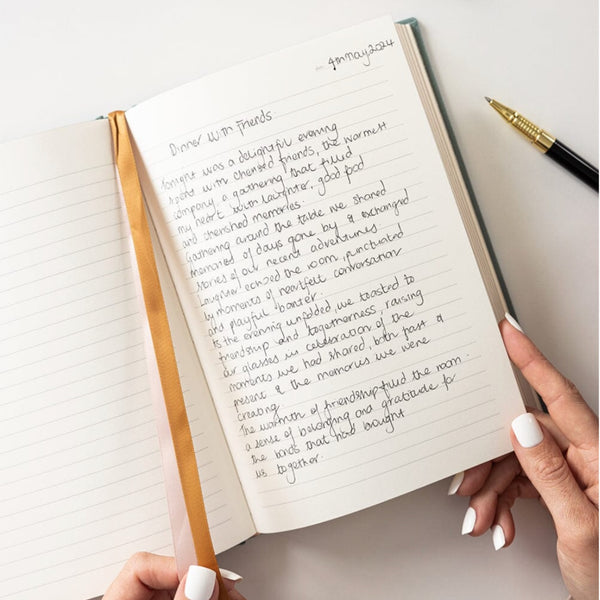 4th May 2024
Dinner With Friends
Tonight was a delightful evening
spent with cherised friends, the warmett
company, a gathering that filled
my heart with laughter, good food
and cherished memories.
Gathering around the table we shared
memories of days gone by & exchanged
stories of our recent adventures
Laughter echoed the room, punctuated
by moments of heartfelt conversation
and playful banter.
As the evening unfolded, we toasted to
friendship and togetherness, raising
our glasses in celebration of the
moments we had shared, both past &
present & the memories we were
creating.
The warmth of friendship filled the room.
a sense of belonging and gratitude for
the bonds that had bought
us together.